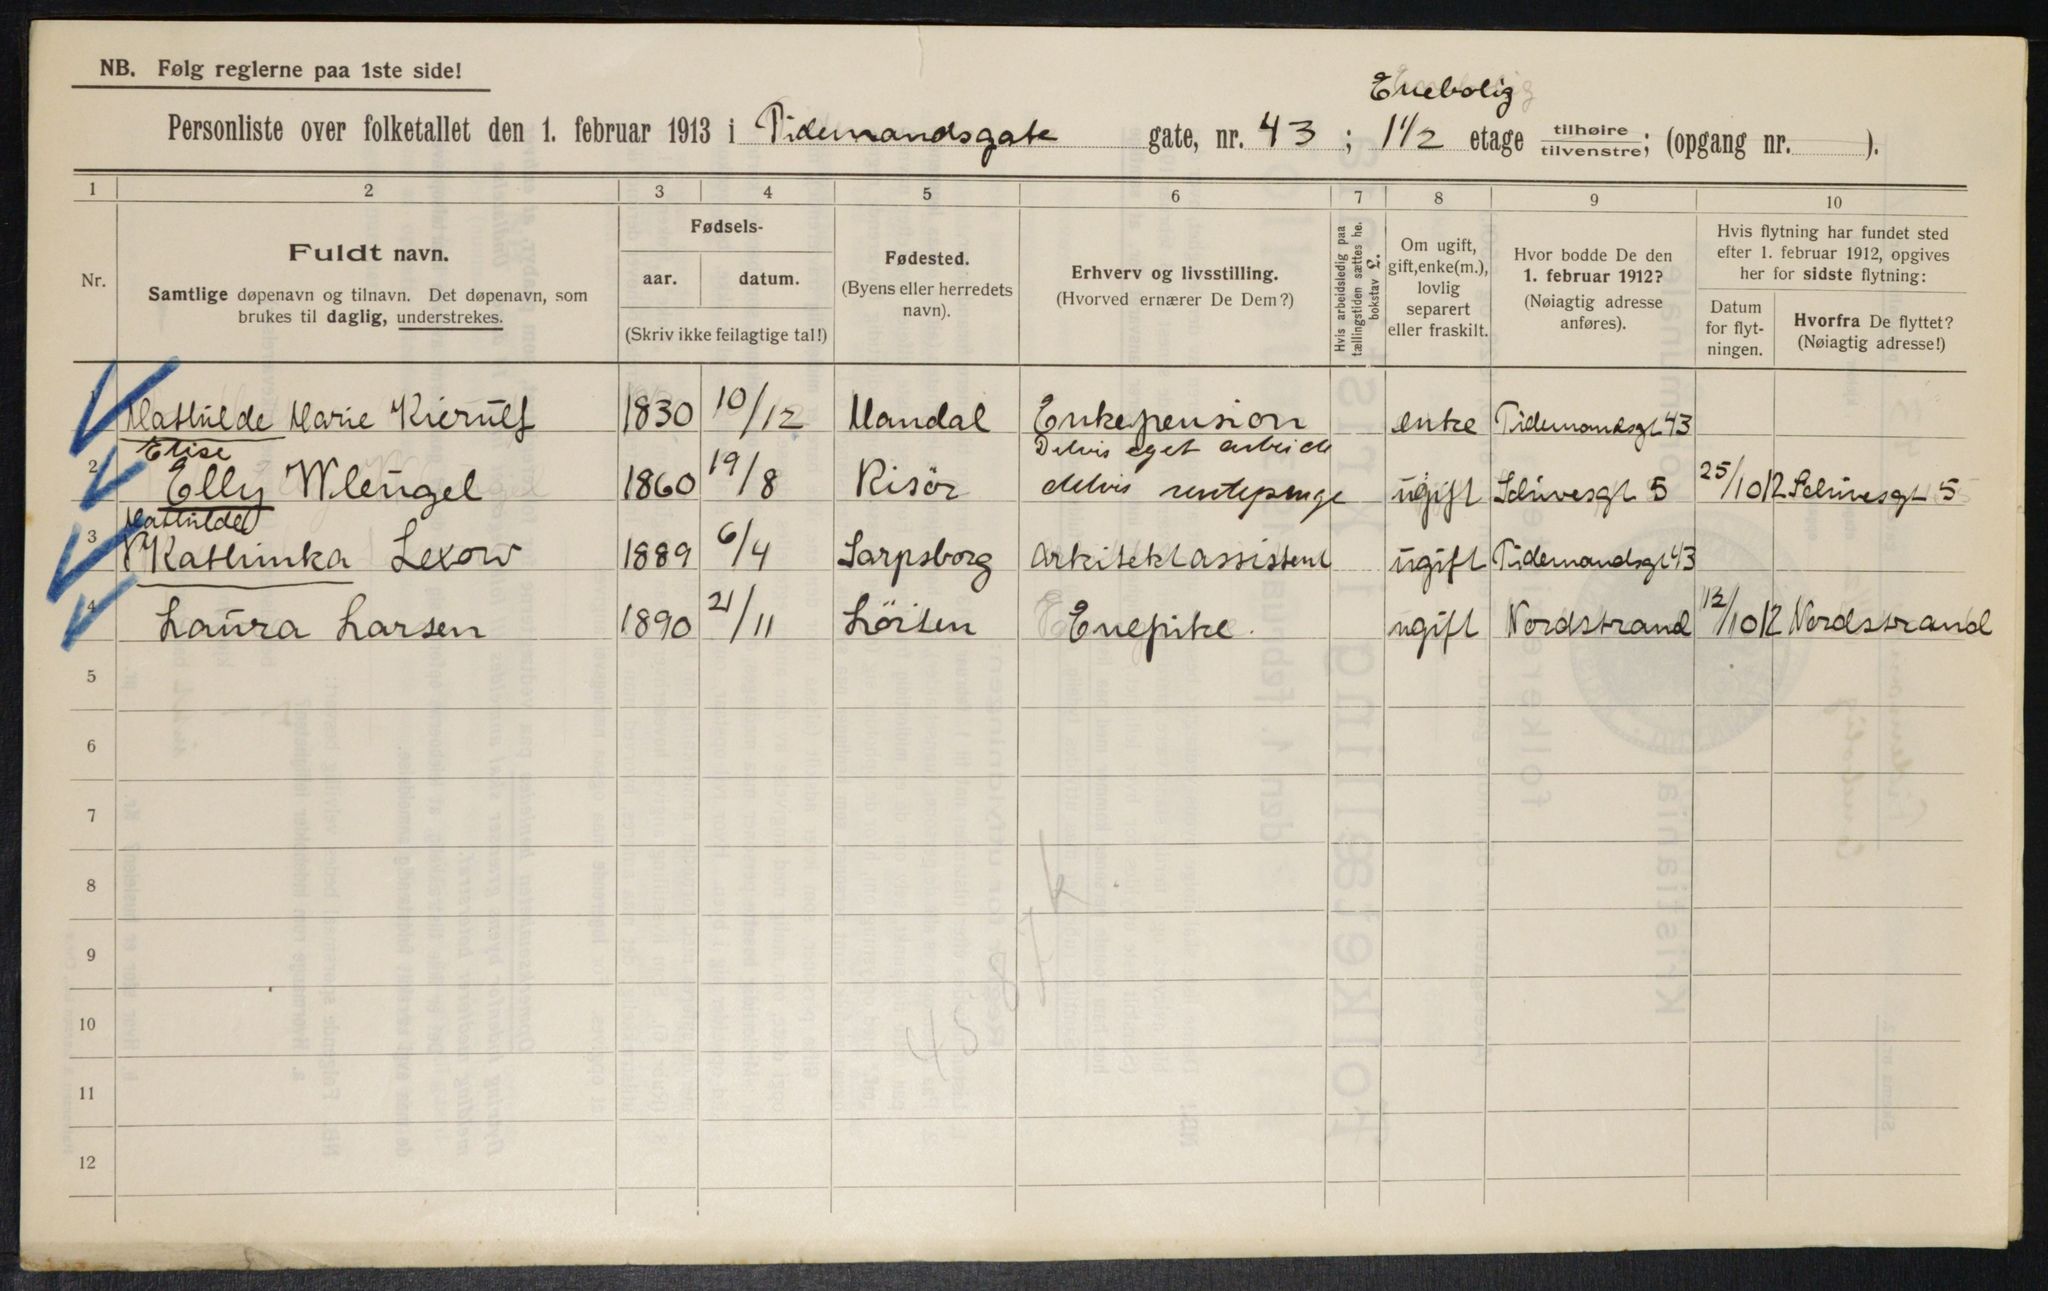 NB. Følg reglerne paa 1ste side!
Enebolig
Personliste over folketallet den 1. februar 1913 i Tidemandsgate gate, nr. 43 ; 1 1/2 etage tilhøire tilvenstre; (opgang nr. ).
1 2 3 4 5 6 7 8 9 10
Nr.
Fuldt navn.
Samtlige døpenavn og tilnavn. Det døpenavn, som
brukes til daglig, understrekes.
Fødsels-
aar. datum.
(Skriv ikke feilagtige tal!)
Fødested.
(Byens eller herredets
navn).
Erhverv og livsstilling.
(Hvorved ernærer De Dem?)
Hvis arbeidsledig paa
tællingstiden sættes he.
bokstav L.
Om ugift,
gift, enke(m.),
lovlig
separert
eller fraskilt.
Hvor bodde De den
1. februar 1912?
(Nøiagtig adresse
anføres).
Hvis flytning har fundet sted
efter 1. februar 1912, opgives
her for sidste flytning:
Datum
for flyt-
ningen.
Hvorfra De flyttet?
(Nøiagtig adresse!)
1 Mathilde Marie Kierulf 1830 10/12 Mandal Enkepension enke Tidemandsgt 43
Elise Delvis eget arbeide
2 Elly Wleugel 1860 19/8 Risör delvis rentepenge ugift Schivesgt 5 25/10 12 Schivesgt 5
Mathilde
3 Kathinka Lexow 1889 6/4 Sarpsborg Arkitektassistent ugift Tidemandsgt 43
4 Laura Larsen 1890 21/11 Löiten Enepike. ugift Nordstrand 12/10 12 Nordstrand
5
6
7
8
9
10
11
12